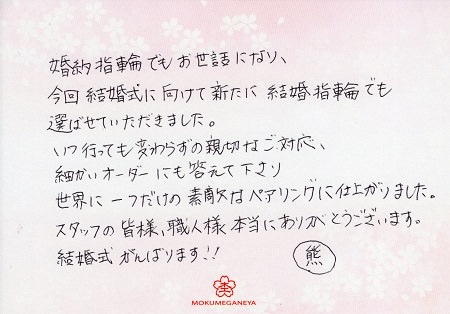 婚約指輪でもお世話になり、
今回結婚式に向けて新たに結婚指輪でも
選ばせていただきました。
いつ行っても変わらずの親切なご対応、
細かいオーダーにも答えて下さり
世界に一つだけの素敵なペアリングに仕上がりました。
スタッフの皆様、職人様本当にありがとうございます。
結婚式がんばります!!
熊
MOKUMEGANEYA